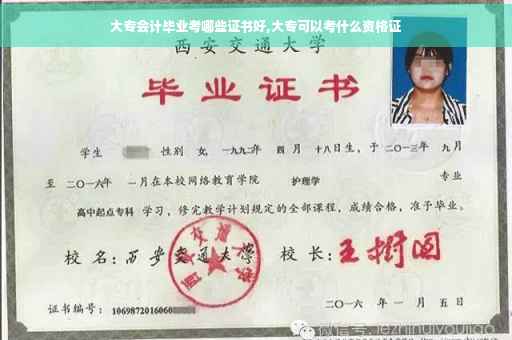 大专会计毕业考哪些证书好,大专可以考什么资格证
西安交通大学
毕业证书
学生 性别 女, 一九九二年 四 月 十八日生, 于 二〇一三年 九 月
至 二〇一六年 一月在本校网络教育学院 护理学 专业
高中起点专科 学习, 修完教学计划规定的全部课程, 成绩合格, 准予毕业。
校 名: 西安交通大学 校 长: 王树国
西安交通大学
证书编号: 1069872016060
二〇一六 年 一 月 五 日
微信号: jezhihuiyoujiao